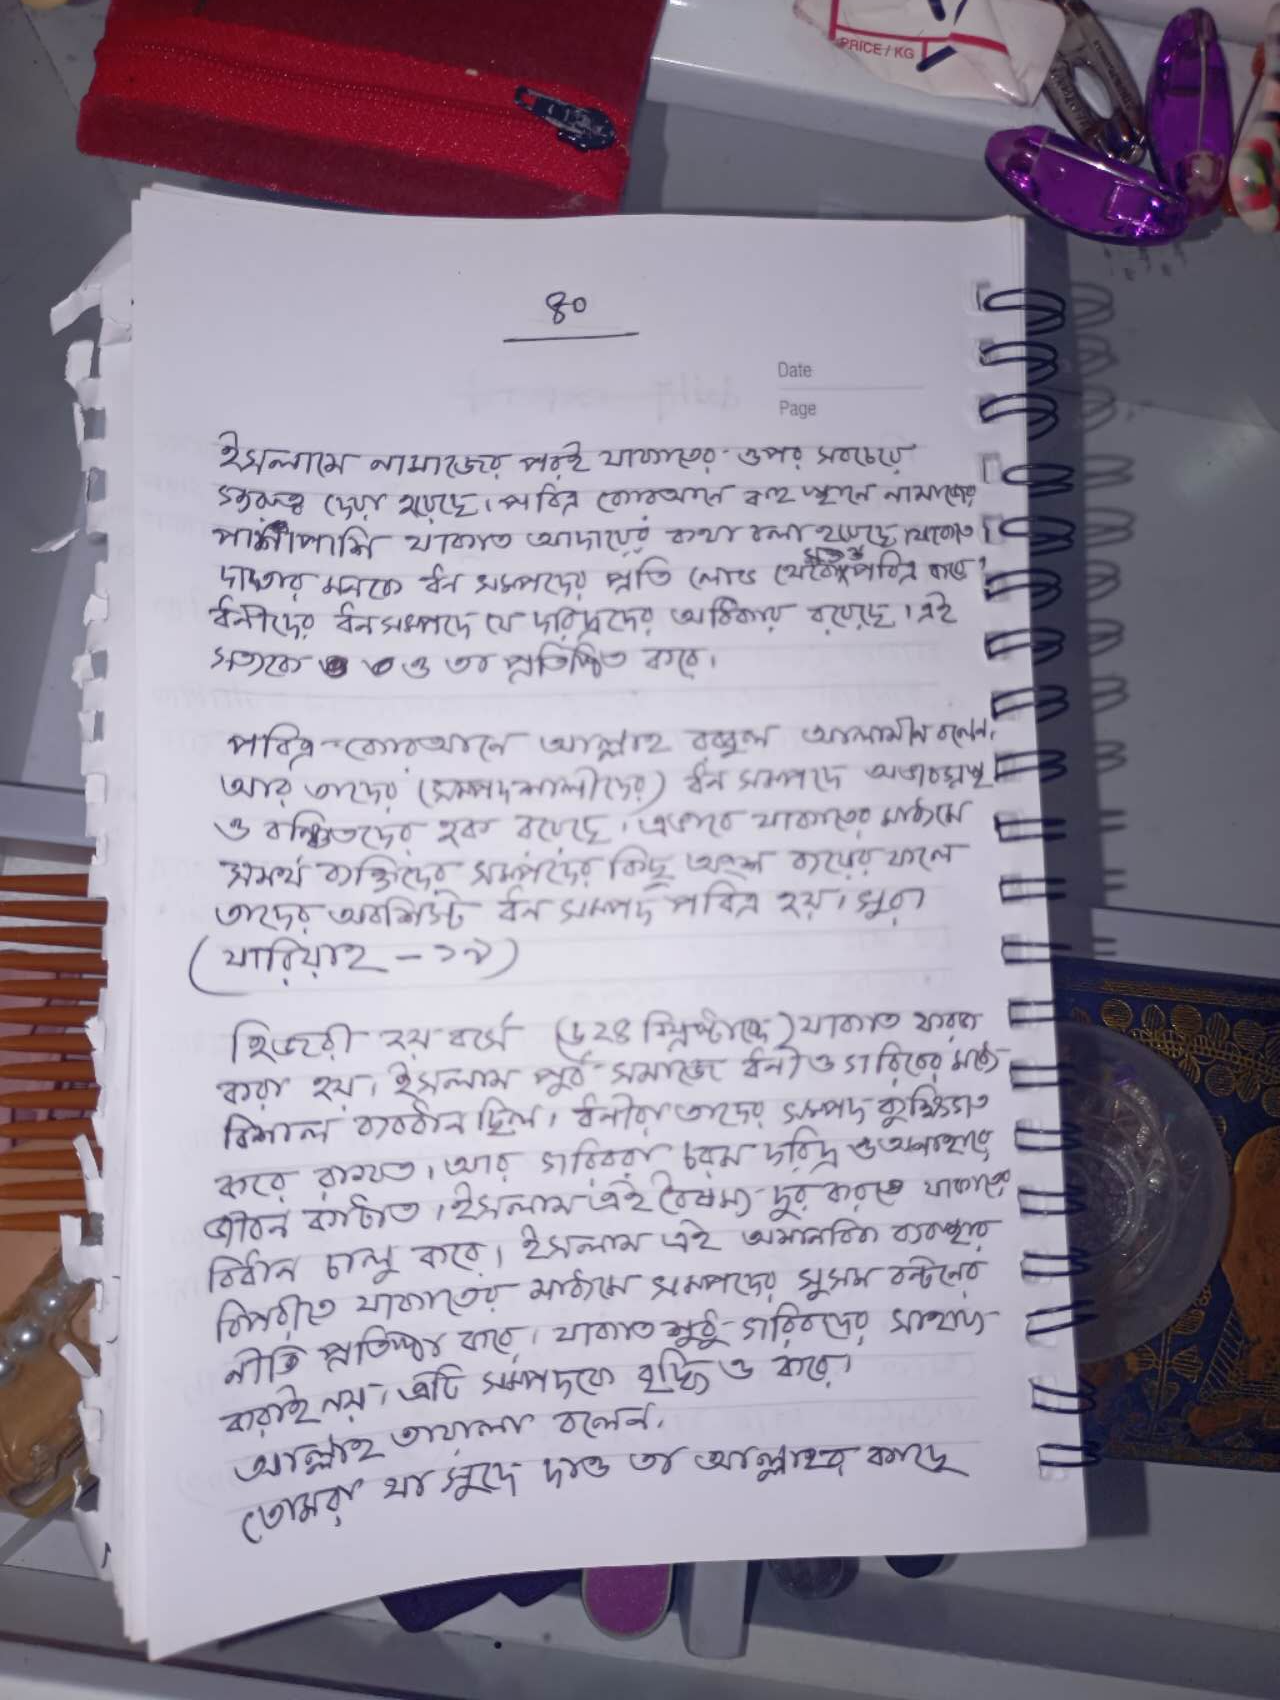 PRICE / KG
৪০
Date
Page
ইসলামে নামাজের পরই যাকাতের ওপর সবচেয়ে
গুরুত্ব দেয়া হয়েছে। পবিত্র কোরআনে বহু স্থানে নামাজের
পাশাপাশি যাকাত আদায়ের কথা বলা হয়েছে। যাকাত
দাতার মনকে ধন সম্পদের প্রতি লোভ থেকে মুক্ত পবিত্র করে,
ধনীদের ধনসম্পদে যে দরিদ্রদের অধিকার রয়েছে। এই
সত্যকে ও তা প্রতিষ্ঠিত করে।
পবিত্র কোরআনে আল্লাহ রব্বুল আলামীন বলেন,
আর তাদের (সম্পদশালীদের) ধন সম্পদে অভাবগ্রস্থ
ও বঞ্চিতদের হক রয়েছে। এভাবে যাকাতের মাধ্যমে
সমর্থ ব্যক্তিদের সম্পদের কিছু অংশ ব্যয়ের ফলে
তাদের অবশিস্ট ধন সম্পদ পবিত্র হয়। সুরা
(যারিয়াহ - ১৯)
হিজরী ২য় বর্সে (৬২৪ খ্রিষ্টাব্দে) যাকাত ফরজ
করা হয়। ইসলাম পূর্ব সমাজে ধনী ও গরিবের মধ্যে
বিশাল ব্যবধান ছিল। ধনীরা তাদের সম্পদ কুক্ষিগত
করে রাখত। আর গরিবরা চরম দরিদ্র ও অনাহারে
জীবন কাটাত। ইসলাম এই বৈষম্য দুর করতে যাকাতের
বিধান চালু করে। ইসলাম এই অমানবিক ব্যবস্থার
বিপরীতে যাকাতের মাধ্যমে সম্পদের সুসম বন্টনের
নীতি প্রতিষ্ঠা করে। যাকাত শুধু গরিবদের সাহায্য
করাই নয়। এটি সম্পদকে বৃদ্ধি ও করে।
আল্লাহ তায়ালা বলেন,
তোমরা যা সুদে দাও তা আল্লাহর কাছে